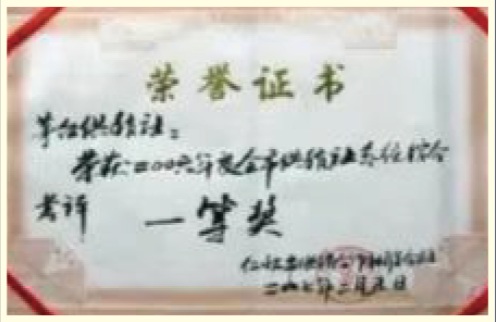 荣誉证书
茅台供销社：
荣获二〇〇六年度全市供销社系统综合
考评 一等奖
仁怀市供销合作社联合社
二〇〇七年二月九日